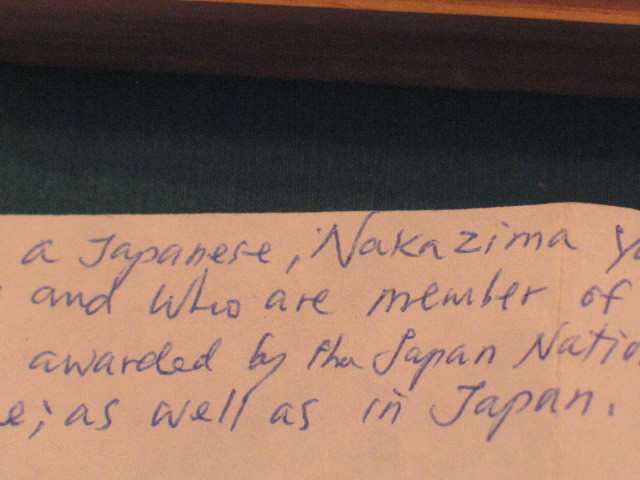 a Japanese, Nakazima
and who are member of
awarded by the Japan
as well as in Japan.